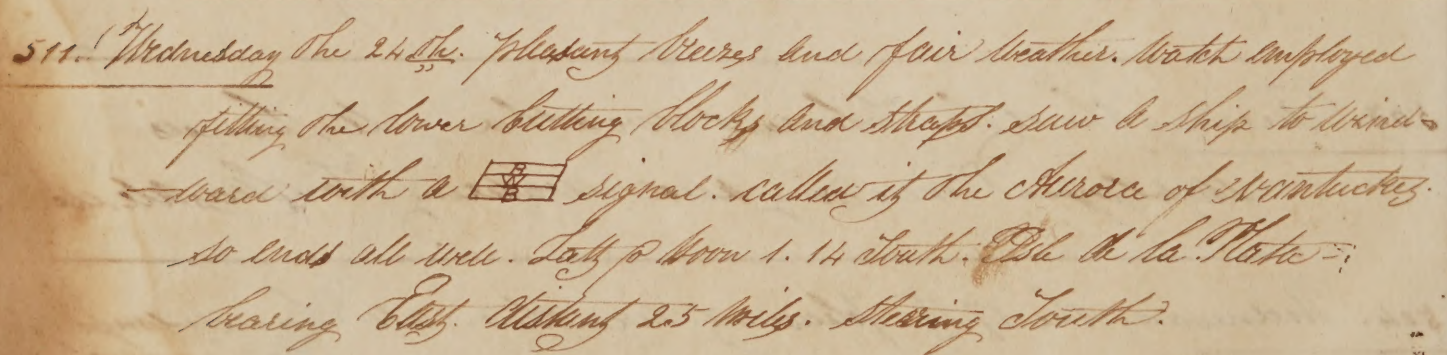 511. Wednesday the 24th. pleasant breezes and fair weather. watch employed
fitting the lower Cutting blocks and straps. saw a ship to wind-
ward with a B B signal. called it the Aurora of Nantucket.
so ends all well. Latt p Moon 1.14 South. Isle de la Plata
bearing East. distant 25 Miles. Stearing South.